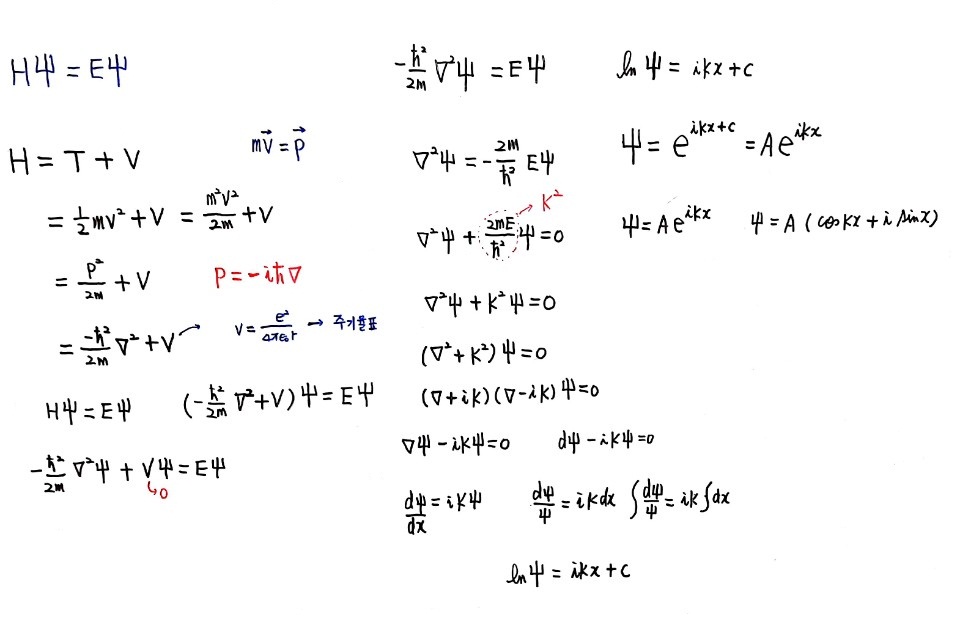 HΨ = EΨ
H = T + V
m\vec{v} = \vec{p}
= \frac{1}{2}mv² + V = \frac{m²v²}{2m} + V
= \frac{p²}{2m} + V
P = -iħ∇
= \frac{-ħ²}{2m}∇² + V
V = \frac{e²}{4πε₀r} → 주기율표
HΨ = EΨ
(-\frac{ħ²}{2m}∇² + V)Ψ = EΨ
-\frac{ħ²}{2m}∇²Ψ + VΨ = EΨ
↳0
-\frac{ħ²}{2m}∇²Ψ = EΨ
∇²Ψ = -\frac{2m}{ħ²}EΨ
→ K²
∇²Ψ + \frac{2mE}{ħ²}Ψ = 0
∇²Ψ + K²Ψ = 0
(∇² + K²)Ψ = 0
(∇ + iK)(∇ - iK)Ψ = 0
∇Ψ - iKΨ = 0
dΨ - iKΨ = 0
\frac{dΨ}{dx} = iKΨ
\frac{dΨ}{Ψ} = iKdx
∫\frac{dΨ}{Ψ} = iK∫dx
lnΨ = iKx + C
ln Ψ = iKx + C
Ψ = e^{iKx+C} = Ae^{iKx}
Ψ = Ae^{iKx}
Ψ = A (cosKx + i sinx)